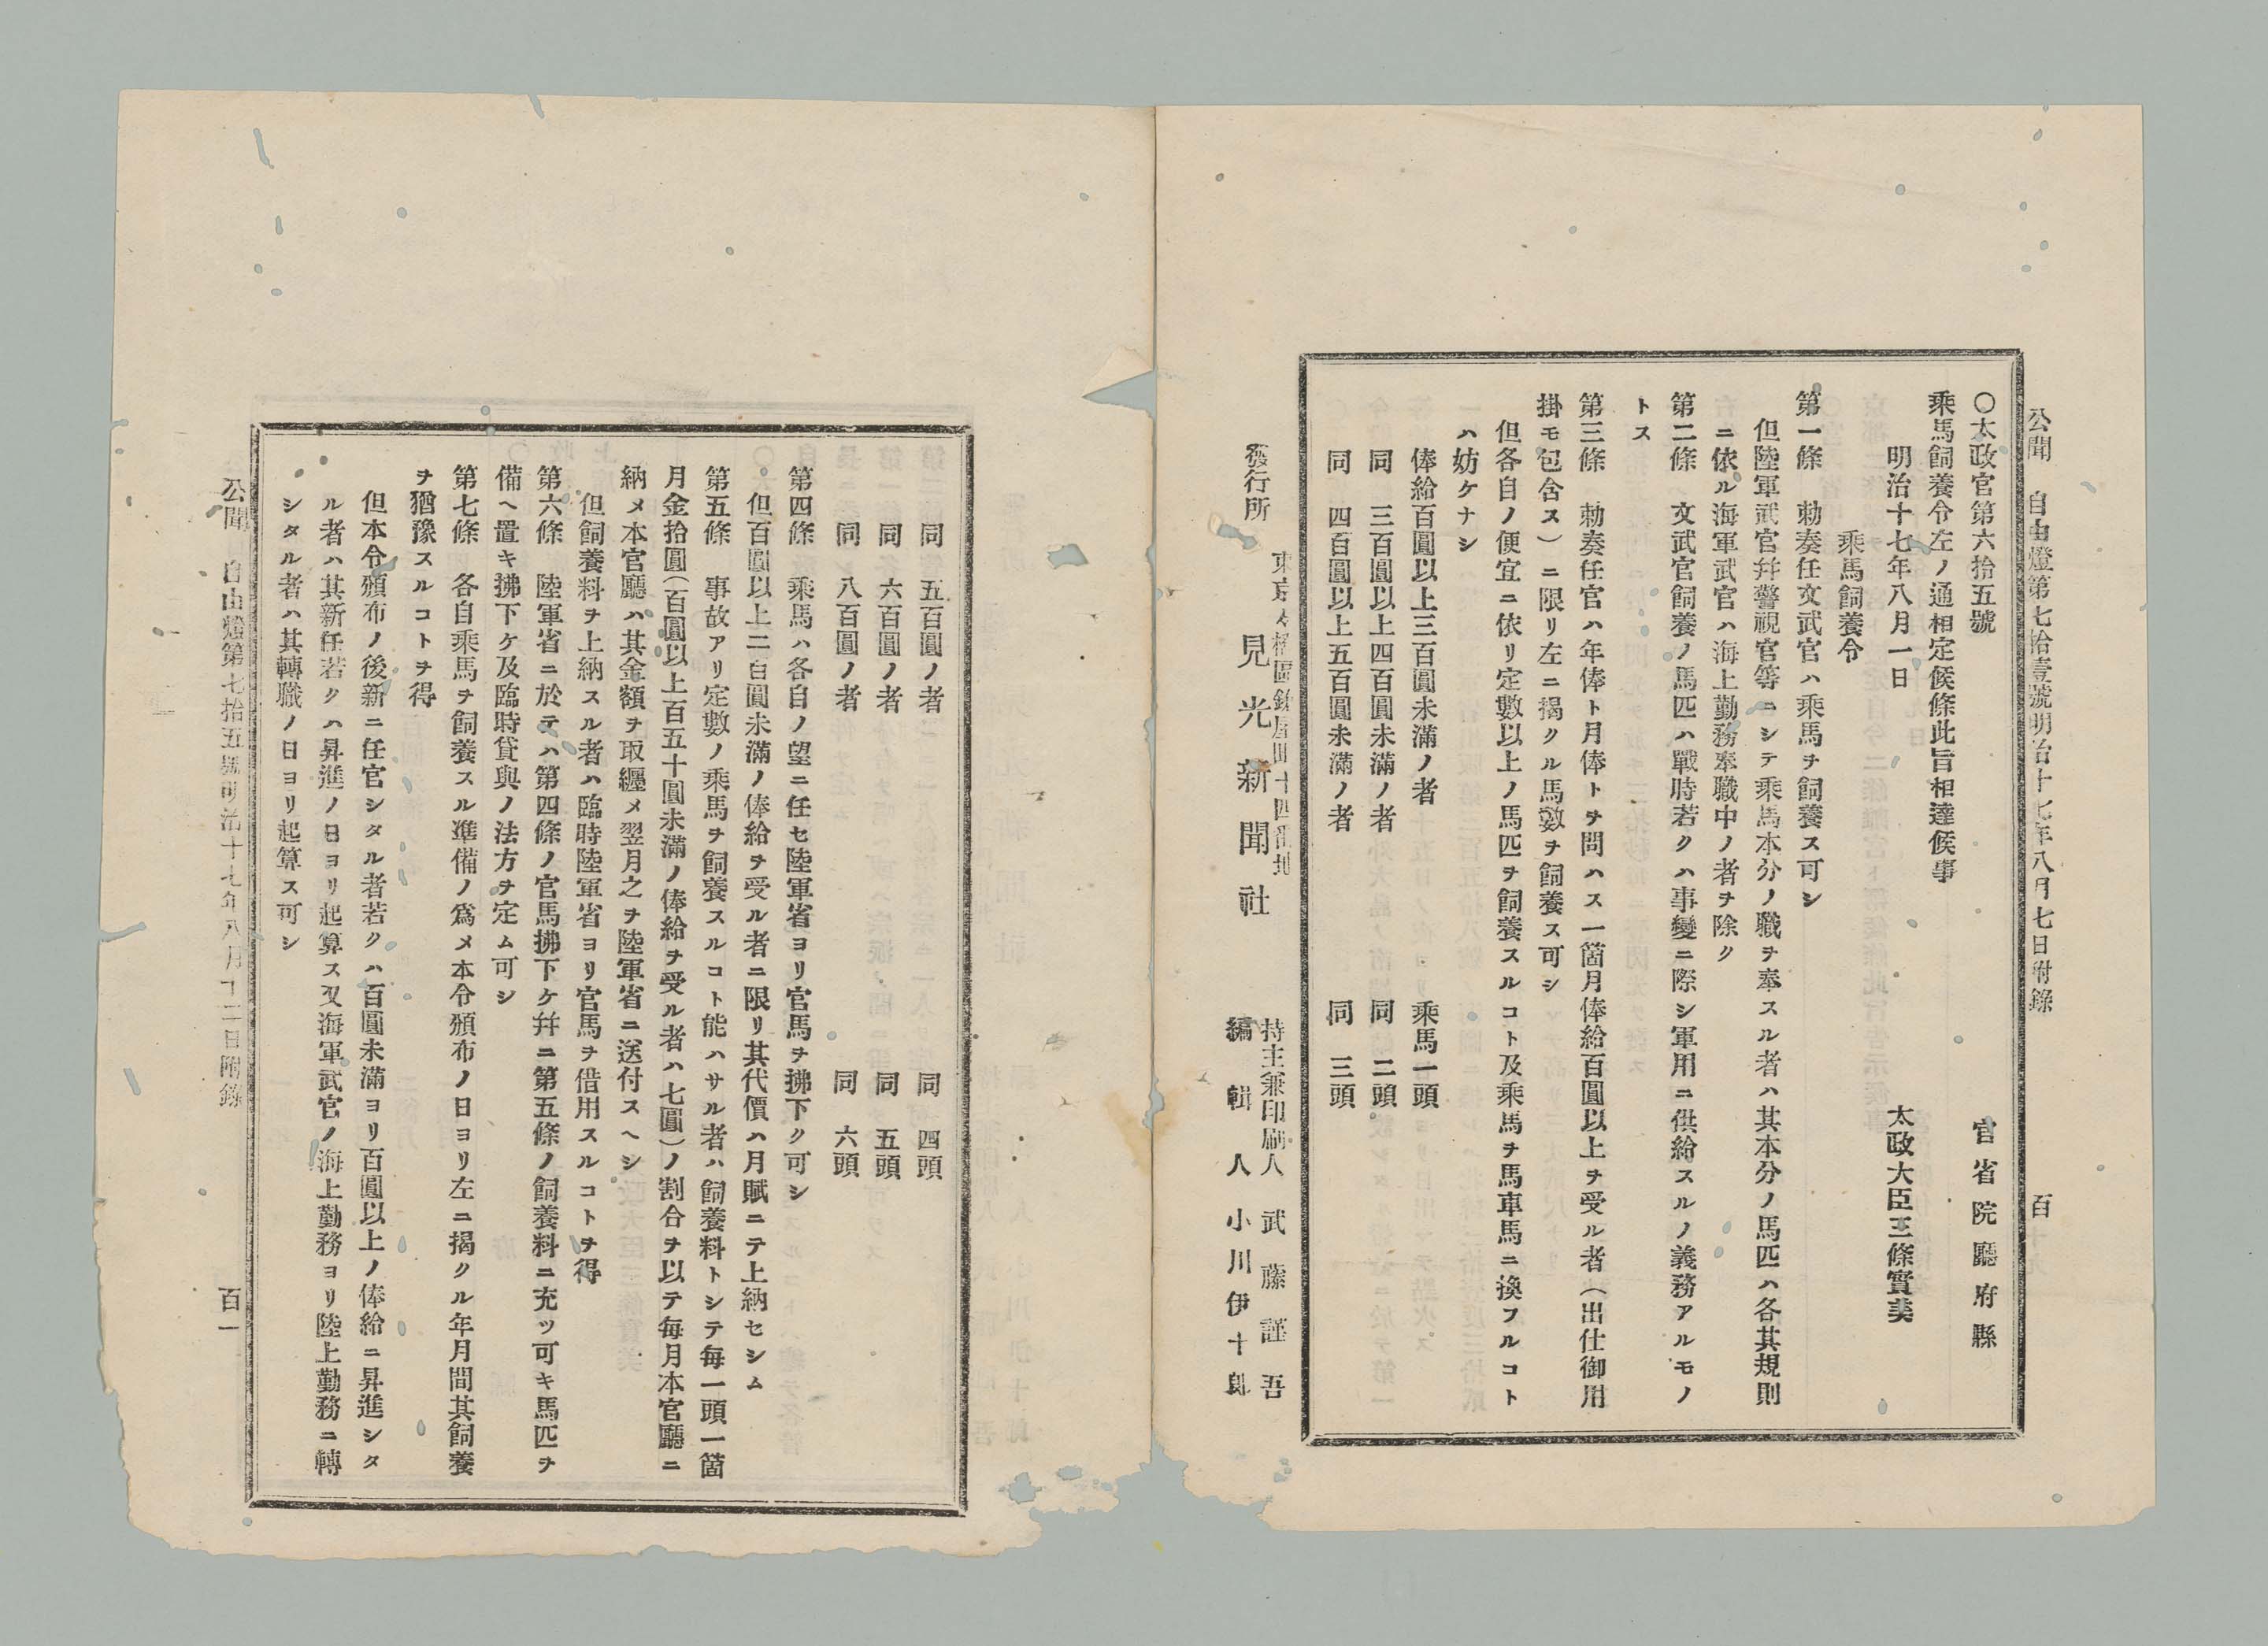 公聞　自由燈第七拾壹號明治十七年八月七日附錄　百
○太政官第六拾五號　官省院廳府縣
乘馬飼養令左ノ通相定候條此旨相達候事
明治十七年八月一日　太政大臣三條實美
乘馬飼養令
第一條　勅奏任文武官ハ乘馬ヲ飼養ス可シ
但陸軍武官幷警視官等ニシテ乘馬本分ノ職ヲ奉スル者ハ其本分ノ馬匹ハ各其規則
ニ依ル海軍武官ハ海上勤務奉職中ノ者ヲ除ク
第二條　文武官飼養ノ馬匹ハ戰時若クハ事變ニ際シ軍用ニ供給スルノ義務アルモノ
トス
第三條　勅奏任官ハ年俸ト月俸トヲ問ハス一箇月俸給百圓以上ヲ受ル者（出仕御用
掛モ包含ス）ニ限リ左ニ揭クル馬數ヲ飼養ス可シ
但各自ノ便宜ニ依リ定數以上ノ馬匹ヲ飼養スルコト及乘馬ヲ馬車馬ニ換フルコト
ハ妨ケナシ
俸給百圓以上三百圓未滿ノ者　乘馬一頭
同　三百圓以上四百圓未滿ノ者　同　二頭
同　四百圓以上五百圓未滿ノ者　同　三頭
發行所　東京橋區屋町十四番地　見光新聞社　持主兼印刷人　武藤謹吾
編輯人　小川伊十郎
同　五百圓ノ者　同　四頭
同　六百圓ノ者　同　五頭
同　八百圓ノ者　同　六頭
第四條　乘馬ハ各自ノ望ニ任セ陸軍省ヨリ官馬ヲ拂下ク可シ
但百圓以上二百圓未滿ノ俸給ヲ受ル者ニ限リ其代價ハ月賦ニテ上納セシム
第五條　事故アリ定數ノ乘馬ヲ飼養スルコト能ハサル者ハ飼養料トシテ每一頭一箇
月金拾圓（百圓以上百五十圓未滿ノ俸給ヲ受ル者ハ七圓）ノ割合ヲ以テ每月本官廳ニ
納メ本官廳ハ其金額ヲ取纒メ翌月之ヲ陸軍省ニ送付スヘシ
但飼養料ヲ上納スル者ハ臨時陸軍省ヨリ官馬ヲ借用スルコトヲ得
第六條　陸軍省ニ於テハ第四條ノ官馬拂下ケ幷ニ第五條ノ飼養料ニ充ツ可キ馬匹ヲ
備ヘ置キ拂下ケ及臨時貸與ノ法方ヲ定ム可シ
第七條　各自乘馬ヲ飼養スル準備ノ爲メ本令頒布ノ日ヨリ左ニ揭クル年月間其飼養
ヲ猶豫スルコトヲ得
但本令頒布ノ後新ニ任官シタル者若クハ百圓未滿ヨリ百圓以上ノ俸給ニ昇進シタ
ル者ハ其新任若クハ昇進ノ日ヨリ起算ス又海軍武官ノ海上勤務ヨリ陸上勤務ニ轉
シタル者ハ其轉職ノ日ヨリ起算ス可シ
公聞　自由燈第七拾五號明治十七年八月十二日附錄　百一